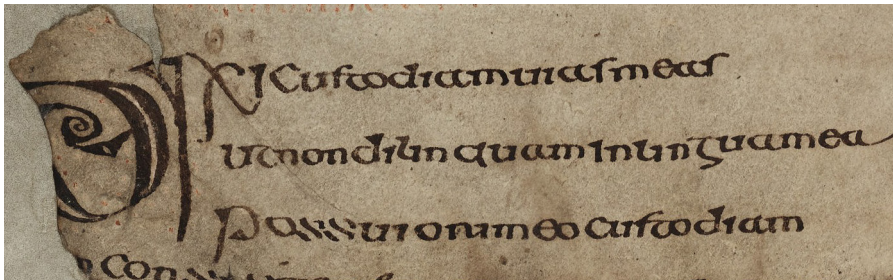 DIXI Custodiam uias meas
ut non dilinquam in lingua mea
Possui ori meo custodiam